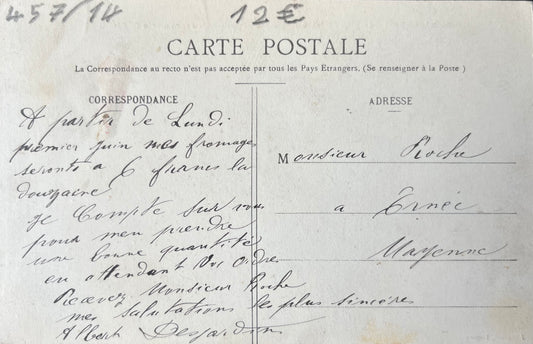 457/14
12€
CARTE POSTALE
La Correspondance au recto n'est pas acceptée par tous les Pays Etrangers. (Se renseigner à la Poste)
CORRESPONDANCE
A partir de Lundi
premier juin mes fromages
seronts a 6 francs la
douzaine
Je Compte sur vous
pour men prendre
une bonne quantité
en attendant Vos Ordres
Recevez Monsieur Roche
mes salutations les plus sincères
Albert Desjardin
ADRESSE
Monsieur Roche
a Ernée
Mayenne